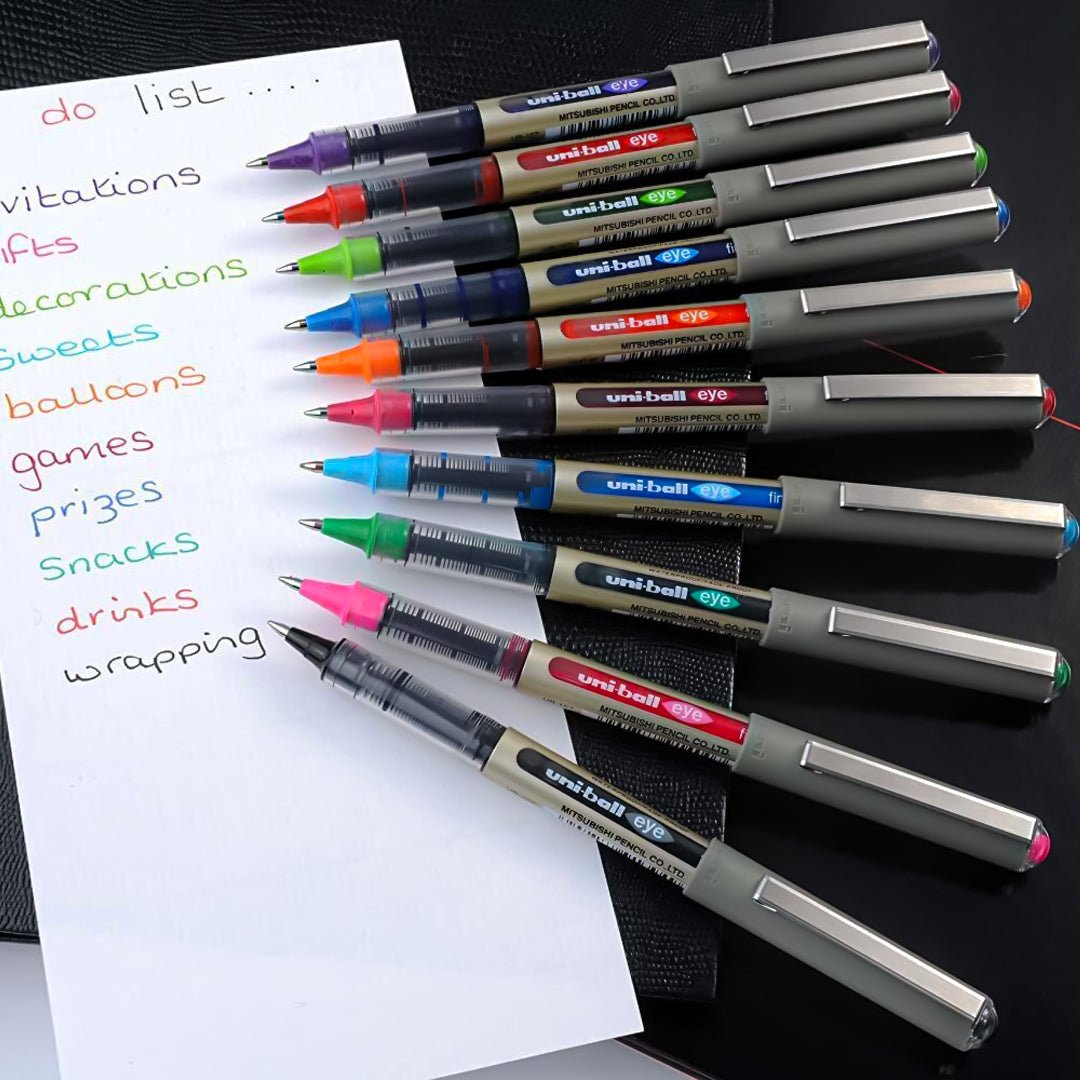 do list ....
vitations
ifts
decorations
sweets
balloons
games
prizes
snacks
drinks
wrapping
uni-ball eye
MITSUBISHI PENCIL CO.,LTD.
uni-ball eye
MITSUBISHI PENCIL CO.,LTD.
uni-ball eye
MITSUBISHI PENCIL CO.,LTD.
uni-ball eye fi
MITSUBISHI PENCIL CO.,LTD.
uni-ball eye
MITSUBISHI PENCIL CO.,LTD.
uni-ball eye
MITSUBISHI PENCIL CO.,LTD.
uni-ball eye fin
MITSUBISHI PENCIL CO.,LTD.
uni-ball eye
MITSUBISHI PENCIL CO.,LTD.
uni-ball eye f
MITSUBISHI PENCIL CO.,LTD.
uni-ball eye
MITSUBISHI PENCIL CO.,LTD.